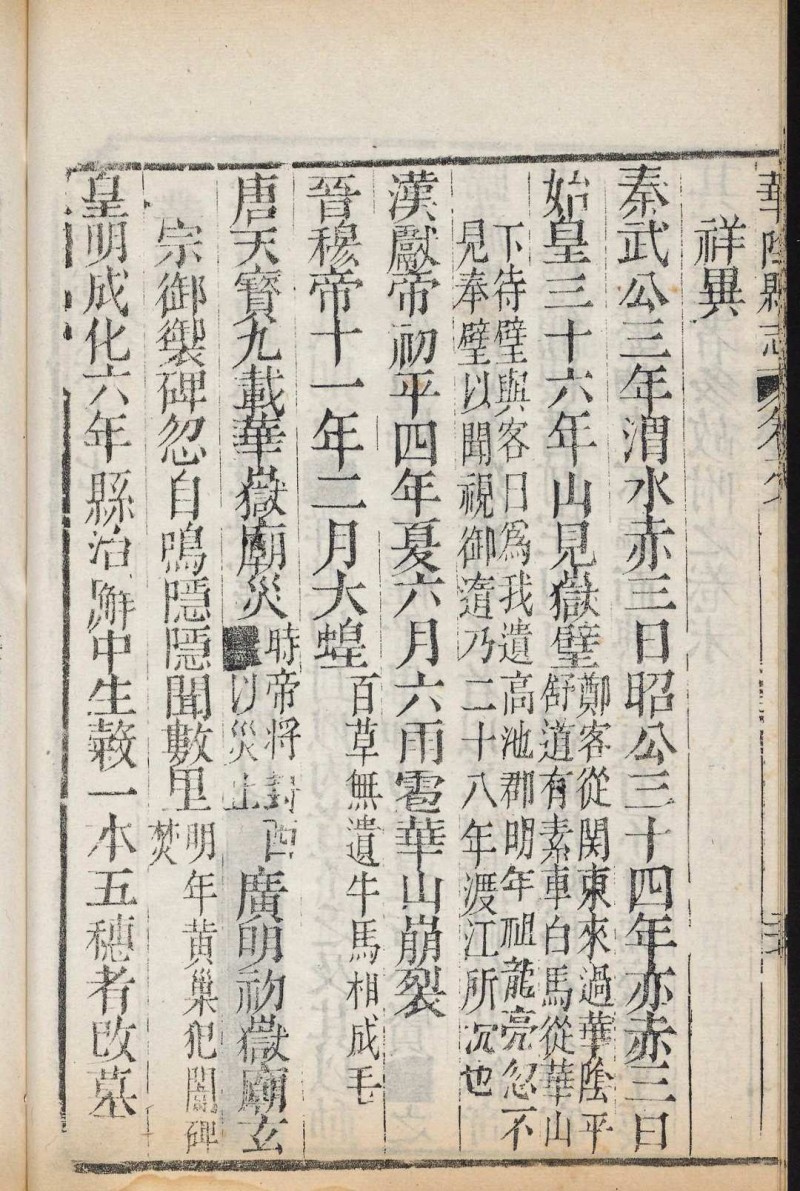 華陰縣志
祥異
秦武公三年渭水赤三日昭公三十四年亦赤三日
始皇三十六年山見嶽璧
鄭客從関東來過華陰平
舒道有素車白馬從華山
下待璧與客曰為我遺高池郡明年祖龍亮忽不
見奉璧以聞視御乃二十八年渡江所沉也
漢獻帝初平四年夏六月六雨雹華山崩裂
晉穆帝十一年二月大蝗
百草無遺牛馬相成毛
唐天寶九載華嶽廟災
時帝將封西
以災止
廣明初嶽廟玄
宗御製碑忽自鳴隱隱聞數里
明年黄巢犯闕碑
焚
皇明成化六年縣治廨中生穀一本五穗者改墓